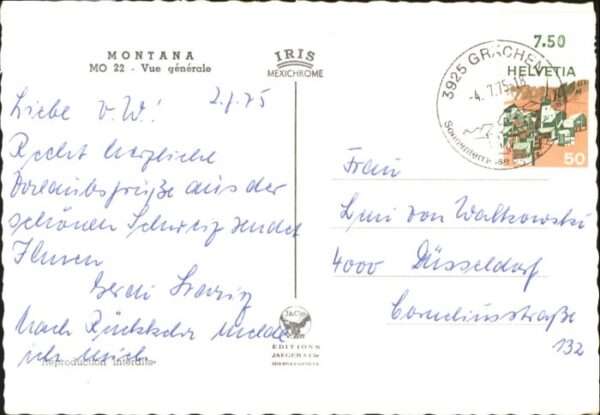 MONTANA
MO 22 - Vue générale
IRIS
MEXICHROME
7.50
HELVETIA
50
3925 GRÄCHEN
-4.7.75-18
Liebe v. W!
2.7.75
Recht herzliche
Urlaubsgrüße aus der
schönen Schweiz sendet
Ihnen
Gerdi
Nach Rückkehr melde
ich mich.
Reproduction interdite
EDITIONS
JAEGER
Frau
von Waltkowski
4000 Düsseldorf
Corneliusstraße
132